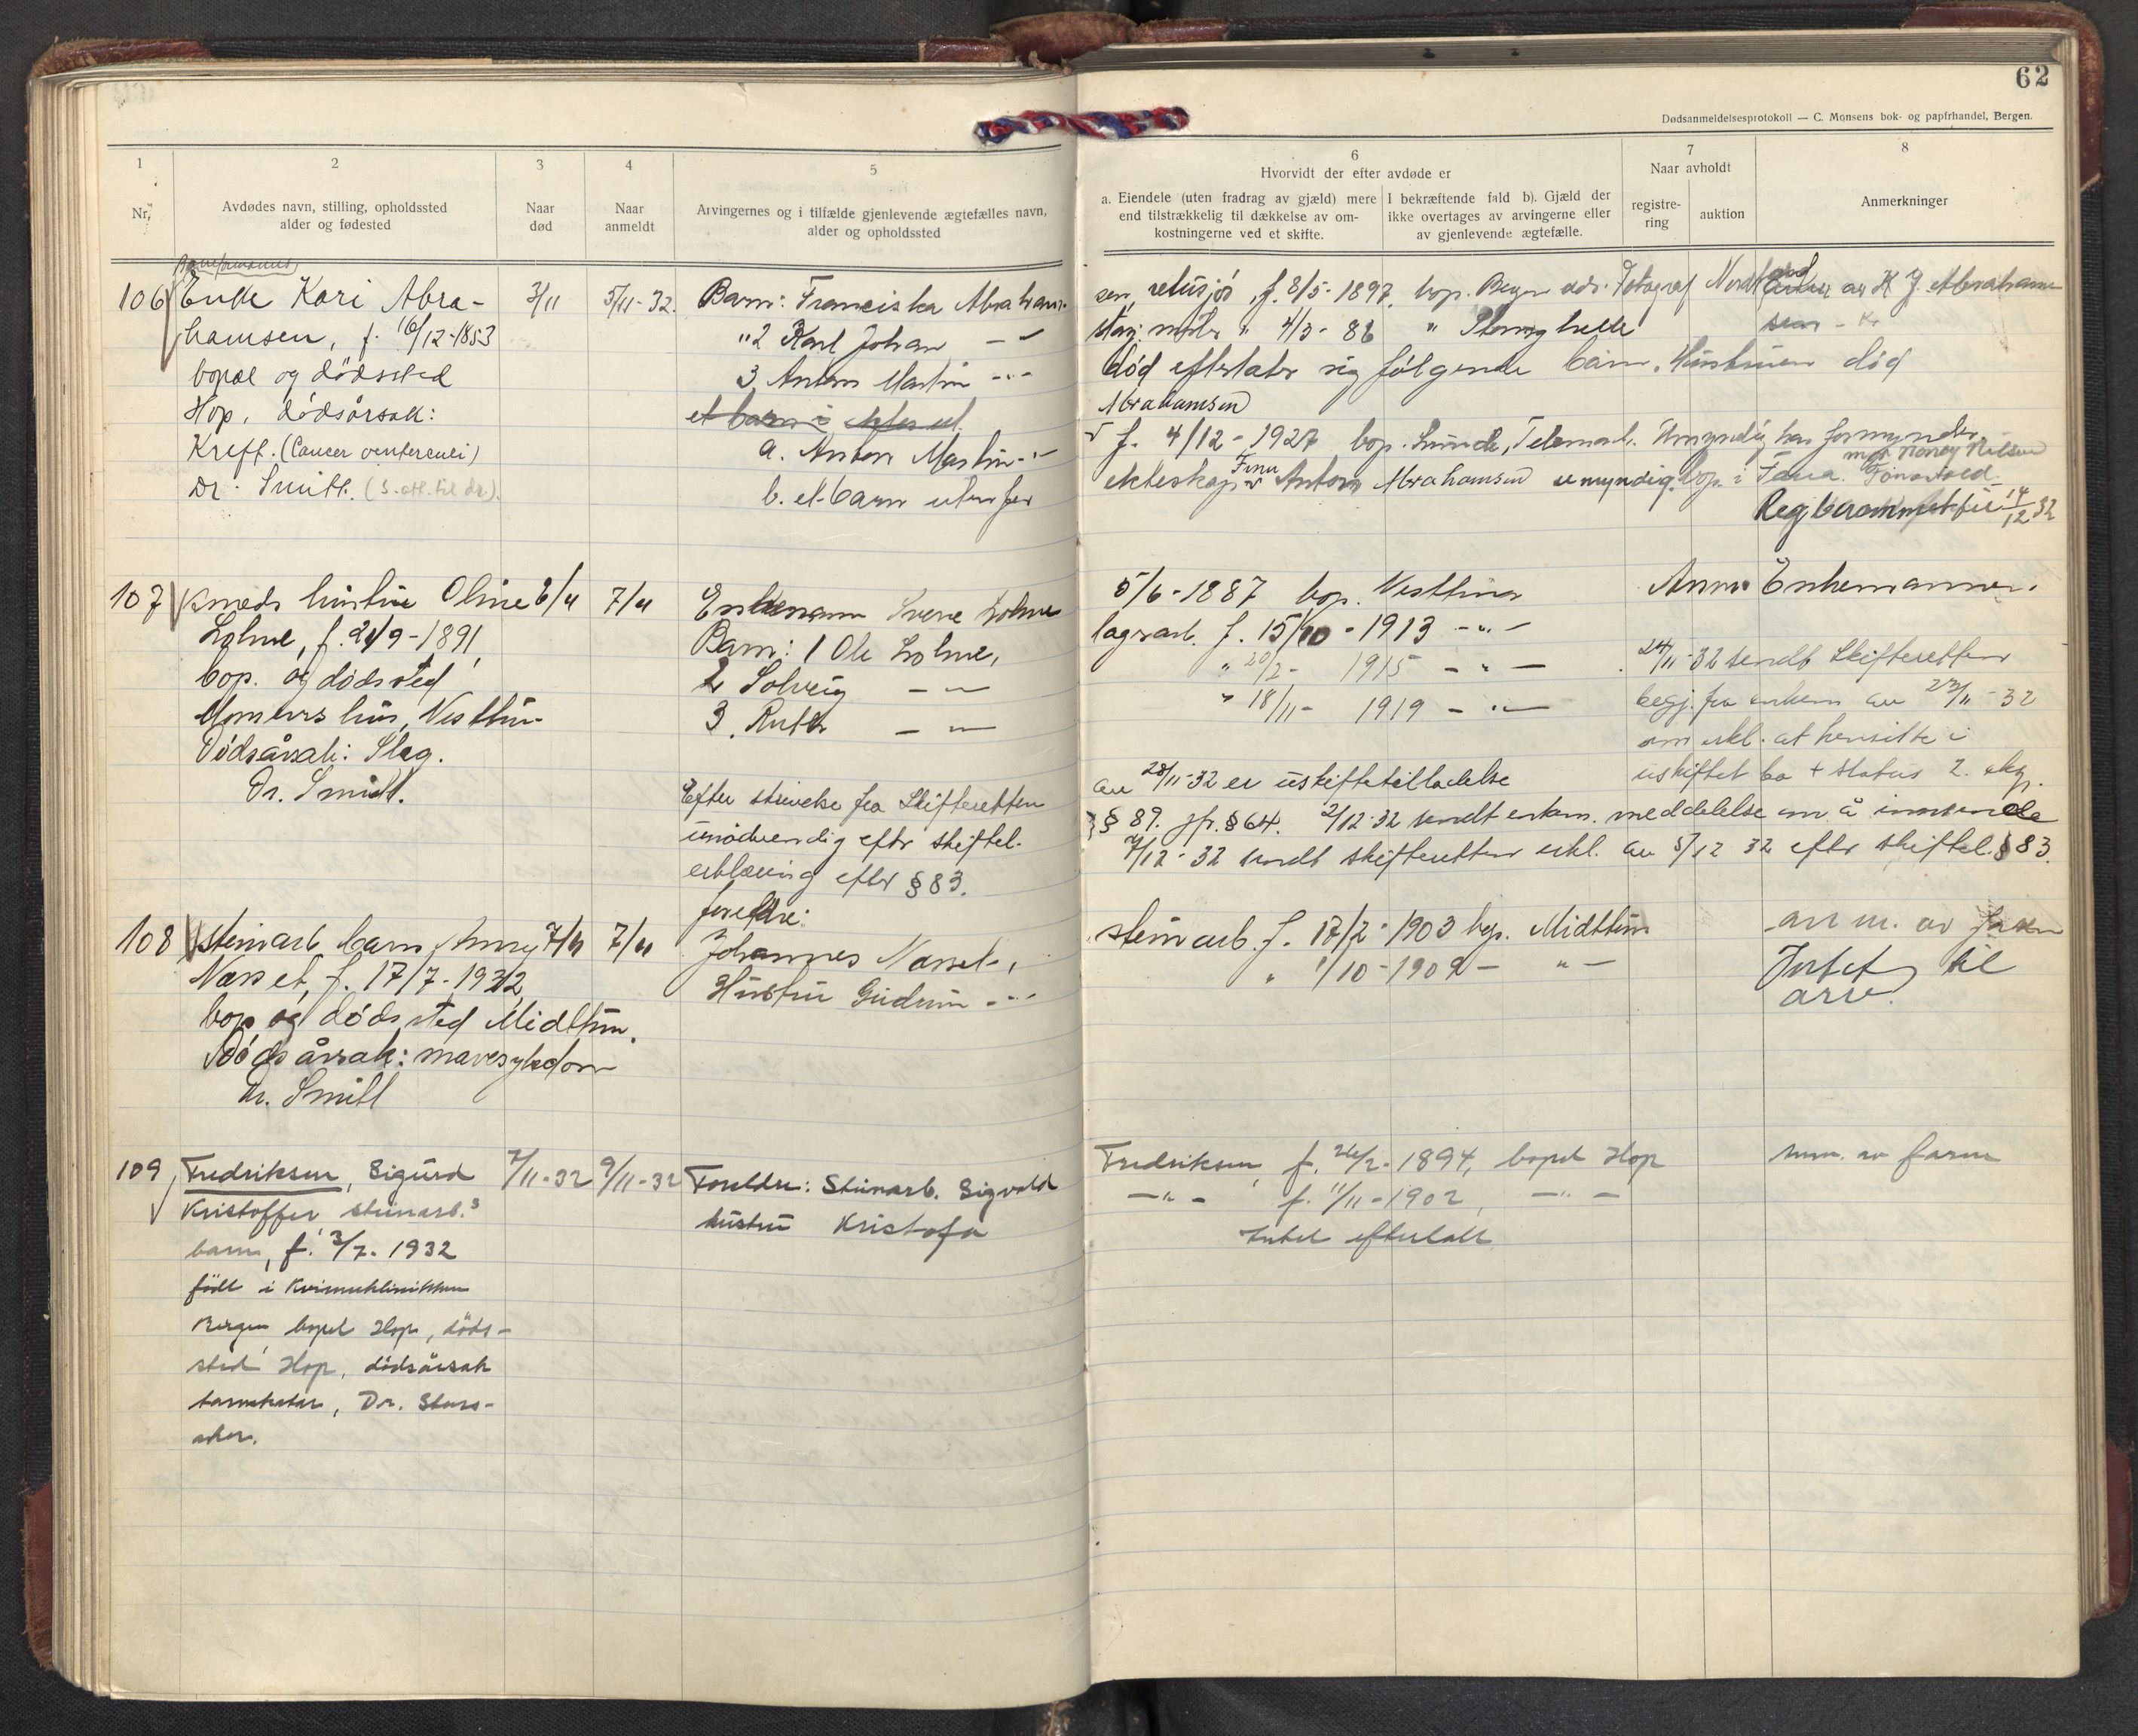 62
Dødsanmeldelsesprotokoll — C. Monsens bok- og papirhandel, Bergen.
1
2
3
4
5
6
7
8
Nr.
Avdødes navn, stilling, opholdssted
alder og fødested
Naar
død
Naar
anmeldt
Arvingernes og i tilfælde gjenlevende ægtefælles navn,
alder og opholdssted
Hvorvidt der efter avdøde er
a. Eiendele (uten fradrag av gjæld) mere
end tilstrækkelig til dækkelse av om-
kostningerne ved et skifte.
I bekræftende fald b). Gjæld der
ikke overtages av arvingerne eller
av gjenlevende ægtefælle.
Naar avholdt
registre-
ring
auktion
Anmerkninger
106 Enke Kari Abra- 3/11 5/11-32. Barn: Franciska Abraham-
sen, retusjør, f. 8/5-1897, bop. Bergen adr. Fotograf
hamsen, f. 16/12-1853 "2 Karl Johan — "
" 4/3-86 "
bopæl og dödssted 3. Anton Martin — " —
död efterlater sig følgende barn. Hustruen död
Hop, dödsårsak: et barn
Abrahamsen
Kreft. (Cancer ventriculi) a. Anton Martin — "
f. 4/12-1927 bop. Lunde, Telemark. Umyndig, har formynder
Dr. Smitt. b. et barn uten for
ekteskap Finn Anton Abrahamsen umyndig, bop. i Fana.
14/12 32
107 hustru Oline 6/11 7/11 Enkemann Sverre Holme
5/6-1887 bop. Vestthun Anm. Enkemannen.
Holme, f. 21/9-1891, Barn: 1 Ole Holme,
lagerarb. f. 15/10-1913 — " —
bop. og dödssted 2 Solveig — " —
" 20/2- 1915 — " — 24/11-32 sendt Skifteretten
hus, Vestthun 3. Ruth — " —
" 18/11- 1919 — " — begj. fra enkem. av 23/11-32
Dödsårsak: Slag. om erkl. at hensitte i
Dr. Smitt. uskiftet bo + status 2. eks.
Efter skrivelse fra Skifteretten av 28/11-32 er uskiftetilladelse
unödvendig efter skiftel. § 89. jfr. § 64. 2/12-32 sendt enkem. meddelelse om å innsende
erklæring efter § 83. 7/12-32 sendt skifteretten erkl. av 5/12 32 efter skiftel. § 83.
foreldre:
108 steinarb. barn 7/11 7/11 Johannes Nesset,
steinarb. f. 17/2-1903 bop. Midtthun anm. av faren
Nesset, f. 17/7-1932, Hustru Gudrun — " —
" 1/10-1909 — " — Intet til
bop. og dödssted Midtthun. arv.
Dödsårsak: mavesykdom
Dr. Smitt
109 Fredriksen, Sigurd 7/11-32 9/11-32 Foreldre: Steinarb. Sigvald
Fredriksen, f. 26/2-1894, bopel Hop anm. av faren
Kristoffer, steinarb.s hustru Kristofa
— " — f. 11/11-1902, — " —
barn, f. 3/7-1932
Intet efterlatt
född i Kvinneklinikken
Bergen, bopel Hop, döds-
sted Hop, dödsårsak
tarmkatar, Dr. Stors-
aker.